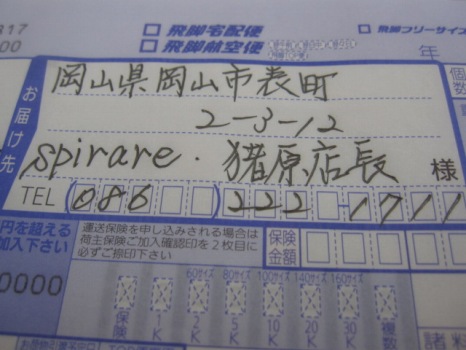 817
000
飛脚宅配便
飛脚フリーサイズ
飛脚航空便
年
お届け先
岡山県岡山市表町
2-3-12
spirare・猪原店長 様
個数
TEL (086) 222-1711
円を超える
加入下さい
運送保険を申し込みされる場合は
荷主保険ご加入確認印を2枚目に
必ずご捺印下さい
保険金額
0000
60サイズ 80サイズ 100サイズ 140サイズ 160サイズ
保険 1K 2K 5K 10K 20K 30K 複数
諸料